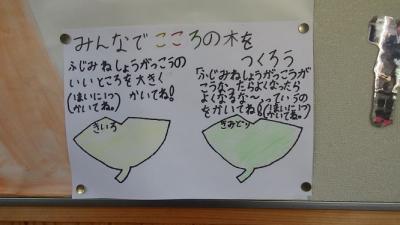 みんなでこころの木を
つくろう
ふじみねしょうがっこうの
いいところを大きく
(はいに1つ
かいてね。)
かいてね!
きいろ
「ふじみねしょうがっこうが
こうなったらよくなったら
よくなるな〜」っていうの
をかいてね!(はいに1つ
かいてね。)
きみどり